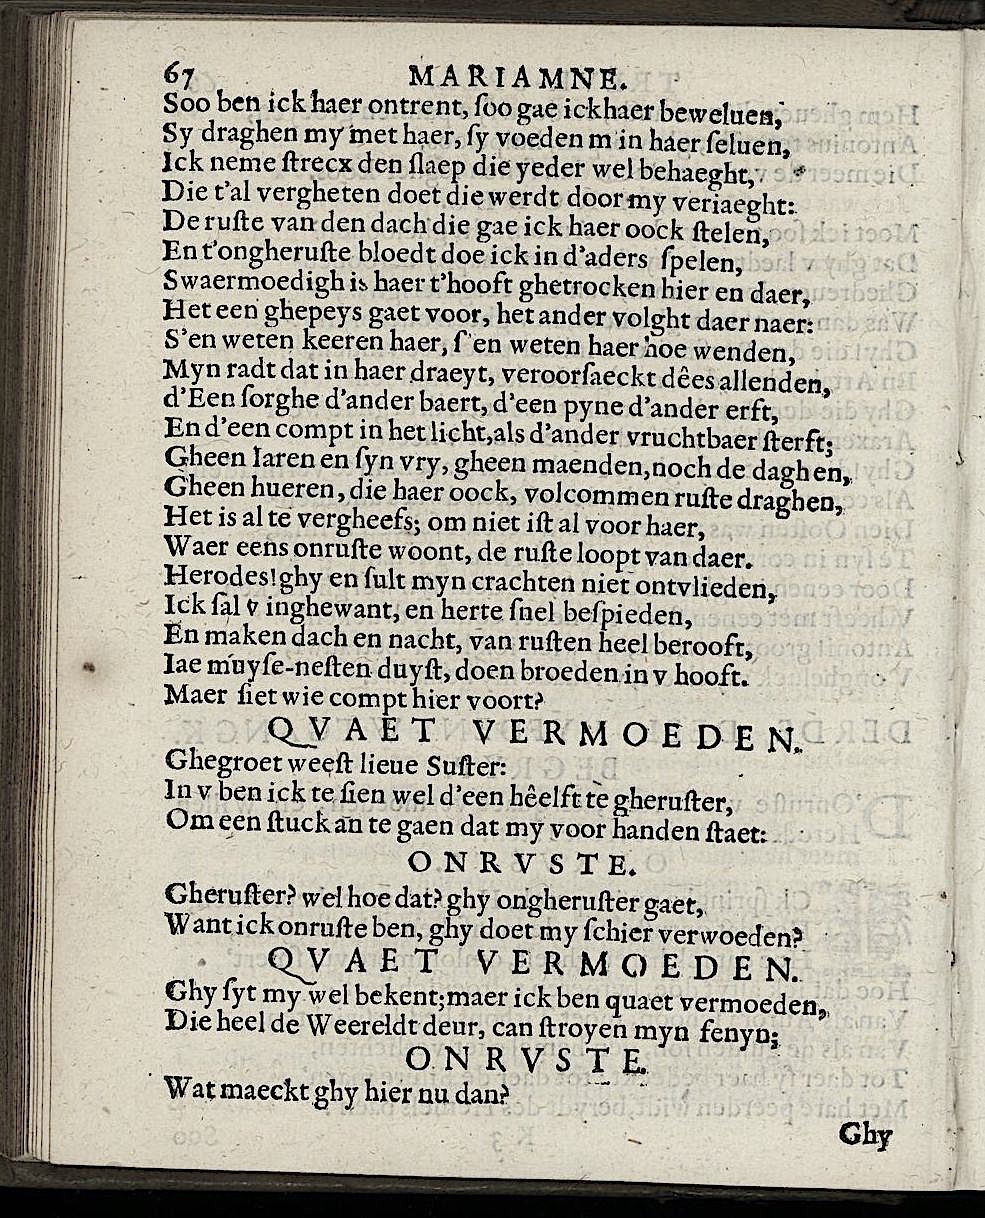 67 MARIAMNE.
Soo ben ick haer ontrent, ſoo gae ickhaer beweluen,
Sy draghen my met haer, ſy voeden m in haer ſeluen,
Ick neme ſtrecx den ſlaep die yeder wel behaeght,
Die t'al vergheten doet die werdt door my veriaeght:
De ruſte van den dach die gae ick haer oock ſtelen,
En t'ongheruſte bloedt doe ick in d'aders ſpelen,
Swaermoedigh is haer t'hooft ghetrocken hier en daer,
Het een ghepeys gaet voor, het ander volght daer naer:
S'en weten keeren haer, ſ'en weten haer hoe wenden,
Myn radt dat in haer draeyt, veroorſaeckt dêes allenden,
d'Een ſorghe d'ander baert, d'een pyne d'ander erft,
En d'een compt in het licht, als d'ander vruchtbaer ſterft;
Gheen Iaren en ſyn vry, gheen maenden, noch de daghen,
Gheen hueren, die haer oock, volcommen ruſte draghen,
Het is al te vergheefs; om niet iſt al voor haer,
Waer eens onruſte woont, de ruſte loopt van daer.
Herodes! ghy en ſult myn crachten niet ontvlieden,
Ick ſal v inghewant, en herte ſnel beſpieden,
En maken dach en nacht, van ruſten heel berooft,
Iae muyſe-neſten duyſt, doen broeden in v hooft.
Maer ſiet wie compt hier voort?
QVAET VERMOEDEN.
Ghegroet weeſt lieue Suſter:
In v ben ick te ſien wel d'een hêelft te gheruſter,
Om een ſtuck an te gaen dat my voor handen ſtaet:
ONRVSTE.
Gheruſter? wel hoe dat? ghy ongheruſter gaet,
Want ick onruſte ben, ghy doet my ſchier verwoeden?
QVAET VERMOEDEN.
Ghy ſyt my wel bekent; maer ick ben quaet vermoeden,
Die heel de Weereldt deur, can ſtroyen myn fenyn;
ONRVSTE.
Wat maeckt ghy hier nu dan?
Ghy